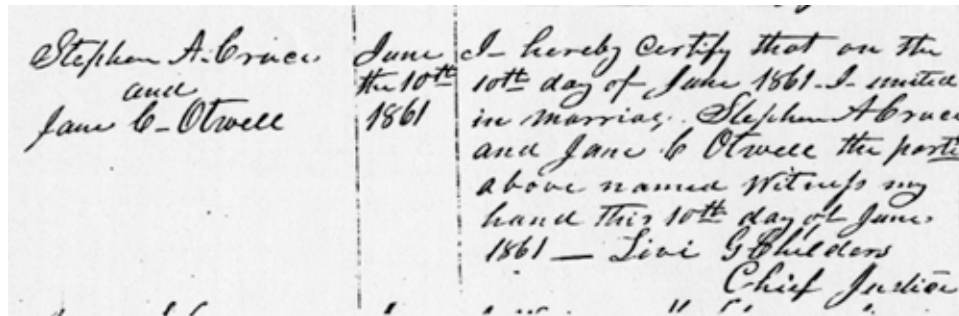 Stephen A. Cruce
and
Jane C. Otwell
June
the 10th
1861
I hereby Certify that on the
10th day of June 1861. I united
in marriag. Stephen A Cruce
and Jane C Otwell the parti
above named Witness my
hand this 10th day of June
1861 — Livi G Childers
Chief Justice